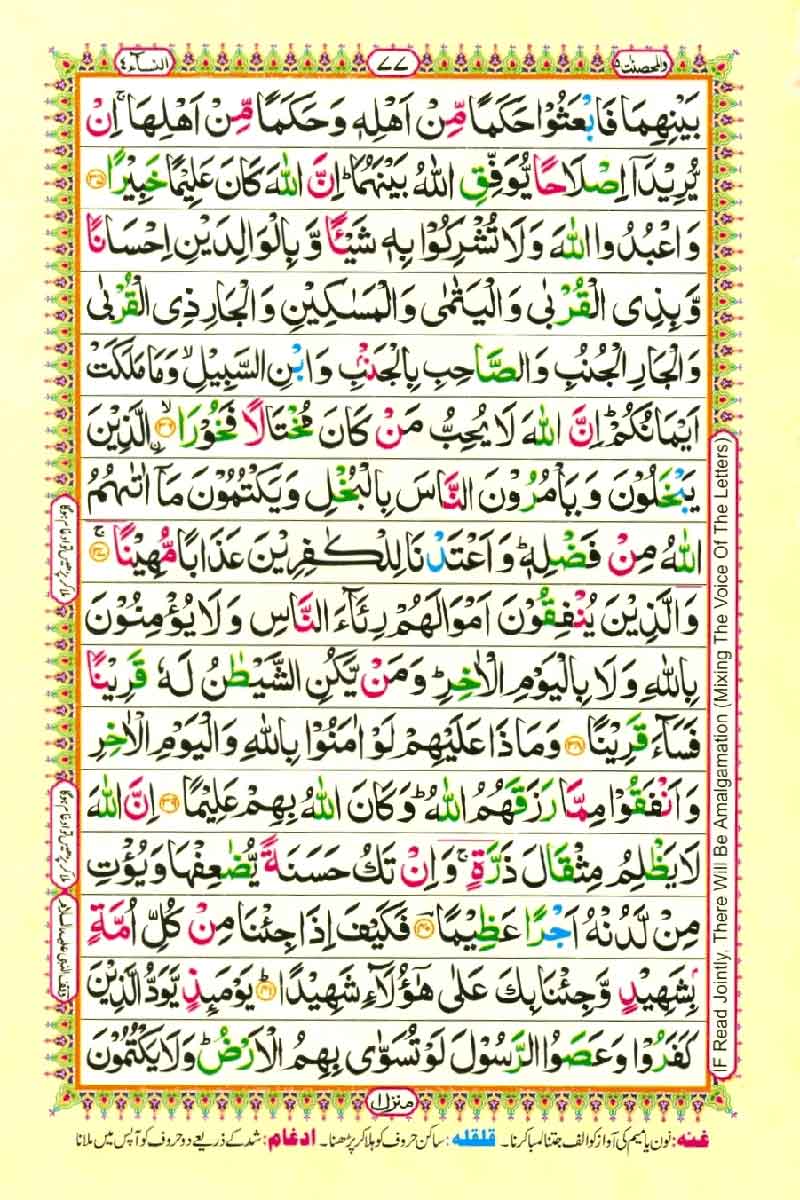 والمحصنت ۵
۷۷
النسآء ۴
بَيۡنِهِمَا فَابۡعَثُوۡا حَكَمًا مِّنۡ اَهۡلِهٖ وَحَكَمًا مِّنۡ اَهۡلِهَا‌ ۚ اِنۡ
يُّرِيۡدَاۤ اِصۡلَاحًا يُّوَفِّقِ اللّٰهُ بَيۡنَهُمَا‌ ؕ اِنَّ اللّٰهَ كَانَ عَلِيۡمًا خَبِيۡرًا ﴿۳۵﴾
وَاعۡبُدُوا اللّٰهَ وَلَا تُشۡرِكُوۡا بِهٖ شَيۡــًٔـا‌ وَّبِالۡوَالِدَيۡنِ اِحۡسَانًا
وَّبِذِى الۡقُرۡبٰى وَالۡيَتٰمٰى وَالۡمَسٰكِيۡنِ وَالۡجَـارِ ذِى الۡقُرۡبٰى
وَالۡجَـارِ الۡجُـنُبِ وَالصَّاحِبِ بِالۡجَـنۡۢبِ وَابۡنِ السَّبِيۡلِ ۙ وَمَا مَلَـكَتۡ
اَيۡمَانُكُمۡ‌ ؕ اِنَّ اللّٰهَ لَا يُحِبُّ مَنۡ كَانَ مُخۡتَالًا فَخُوۡرَا ۙ ﴿۳۶﴾ اۨلَّذِيۡنَ
يَـبۡخَلُوۡنَ وَيَاۡمُرُوۡنَ النَّاسَ بِالۡبُخۡلِ وَيَكۡتُمُوۡنَ مَاۤ اٰتٰٮهُمُ
اللّٰهُ مِنۡ فَضۡلِهٖ‌ ؕ وَاَعۡتَدۡنَا لِلۡكٰفِرِيۡنَ عَذَابًا مُّهِيۡنًا‌ ۚ ﴿۳۷﴾
وَالَّذِيۡنَ يُنۡفِقُوۡنَ اَمۡوَالَهُمۡ رِئَآءَ النَّاسِ وَلَا يُؤۡمِنُوۡنَ
بِاللّٰهِ وَلَا بِالۡيَوۡمِ الۡاٰخِرِ‌ؕ وَمَنۡ يَّكُنِ الشَّيۡطٰنُ لَهٗ قَرِيۡنًا
فَسَآءَ قَرِيۡنًا‏ ﴿۳۸﴾ وَمَاذَا عَلَيۡهِمۡ لَوۡ اٰمَنُوۡا بِاللّٰهِ وَالۡيَوۡمِ الۡاٰخِرِ
وَاَنۡفَقُوۡا مِمَّا رَزَقَهُمُ اللّٰهُ‌ ؕ وَكَانَ اللّٰهُ بِهِمۡ عَلِيۡمًا‏ ﴿۳۹﴾ اِنَّ اللّٰهَ
لَا يَظۡلِمُ مِثۡقَالَ ذَرَّةٍ‌ ۚ وَاِنۡ تَكُ حَسَنَةً يُّضٰعِفۡهَا وَيُؤۡتِ
مِنۡ لَّدُنۡهُ اَجۡرًا عَظِيۡمًا‏ ﴿۴۰﴾ فَكَيۡـفَ اِذَا جِئۡـنَا مِنۡ كُلِّ اُمَّةٍۭ
بِشَهِيۡدٍ وَّجِئۡـنَا بِكَ عَلٰى هٰٓؤُلَاۤءِ شَهِيۡدًا ؕ‏ ﴿۴۱﴾ يَوۡمَٮِٕذٍ يَّوَدُّ الَّذِيۡنَ
كَفَرُوۡا وَعَصَوُا الرَّسُوۡلَ لَوۡ تُسَوّٰى بِهِمُ الۡاَرۡضُ ؕ وَلَا يَكۡتُمُوۡنَ
منزل ۱
غنه: نون یا میم کی آواز کو الف جتنا لمبا کرنا۔ قلقله: ساکن حروف کو ہلا کر پڑھنا۔ ادغام: شد کے ذریعے دو حروف کو آپس میں ملانا
IF Read Jointly, There Will Be Amalgamation (Mixing The Voice Of The Letters)
وقف النبی علیہ السلام